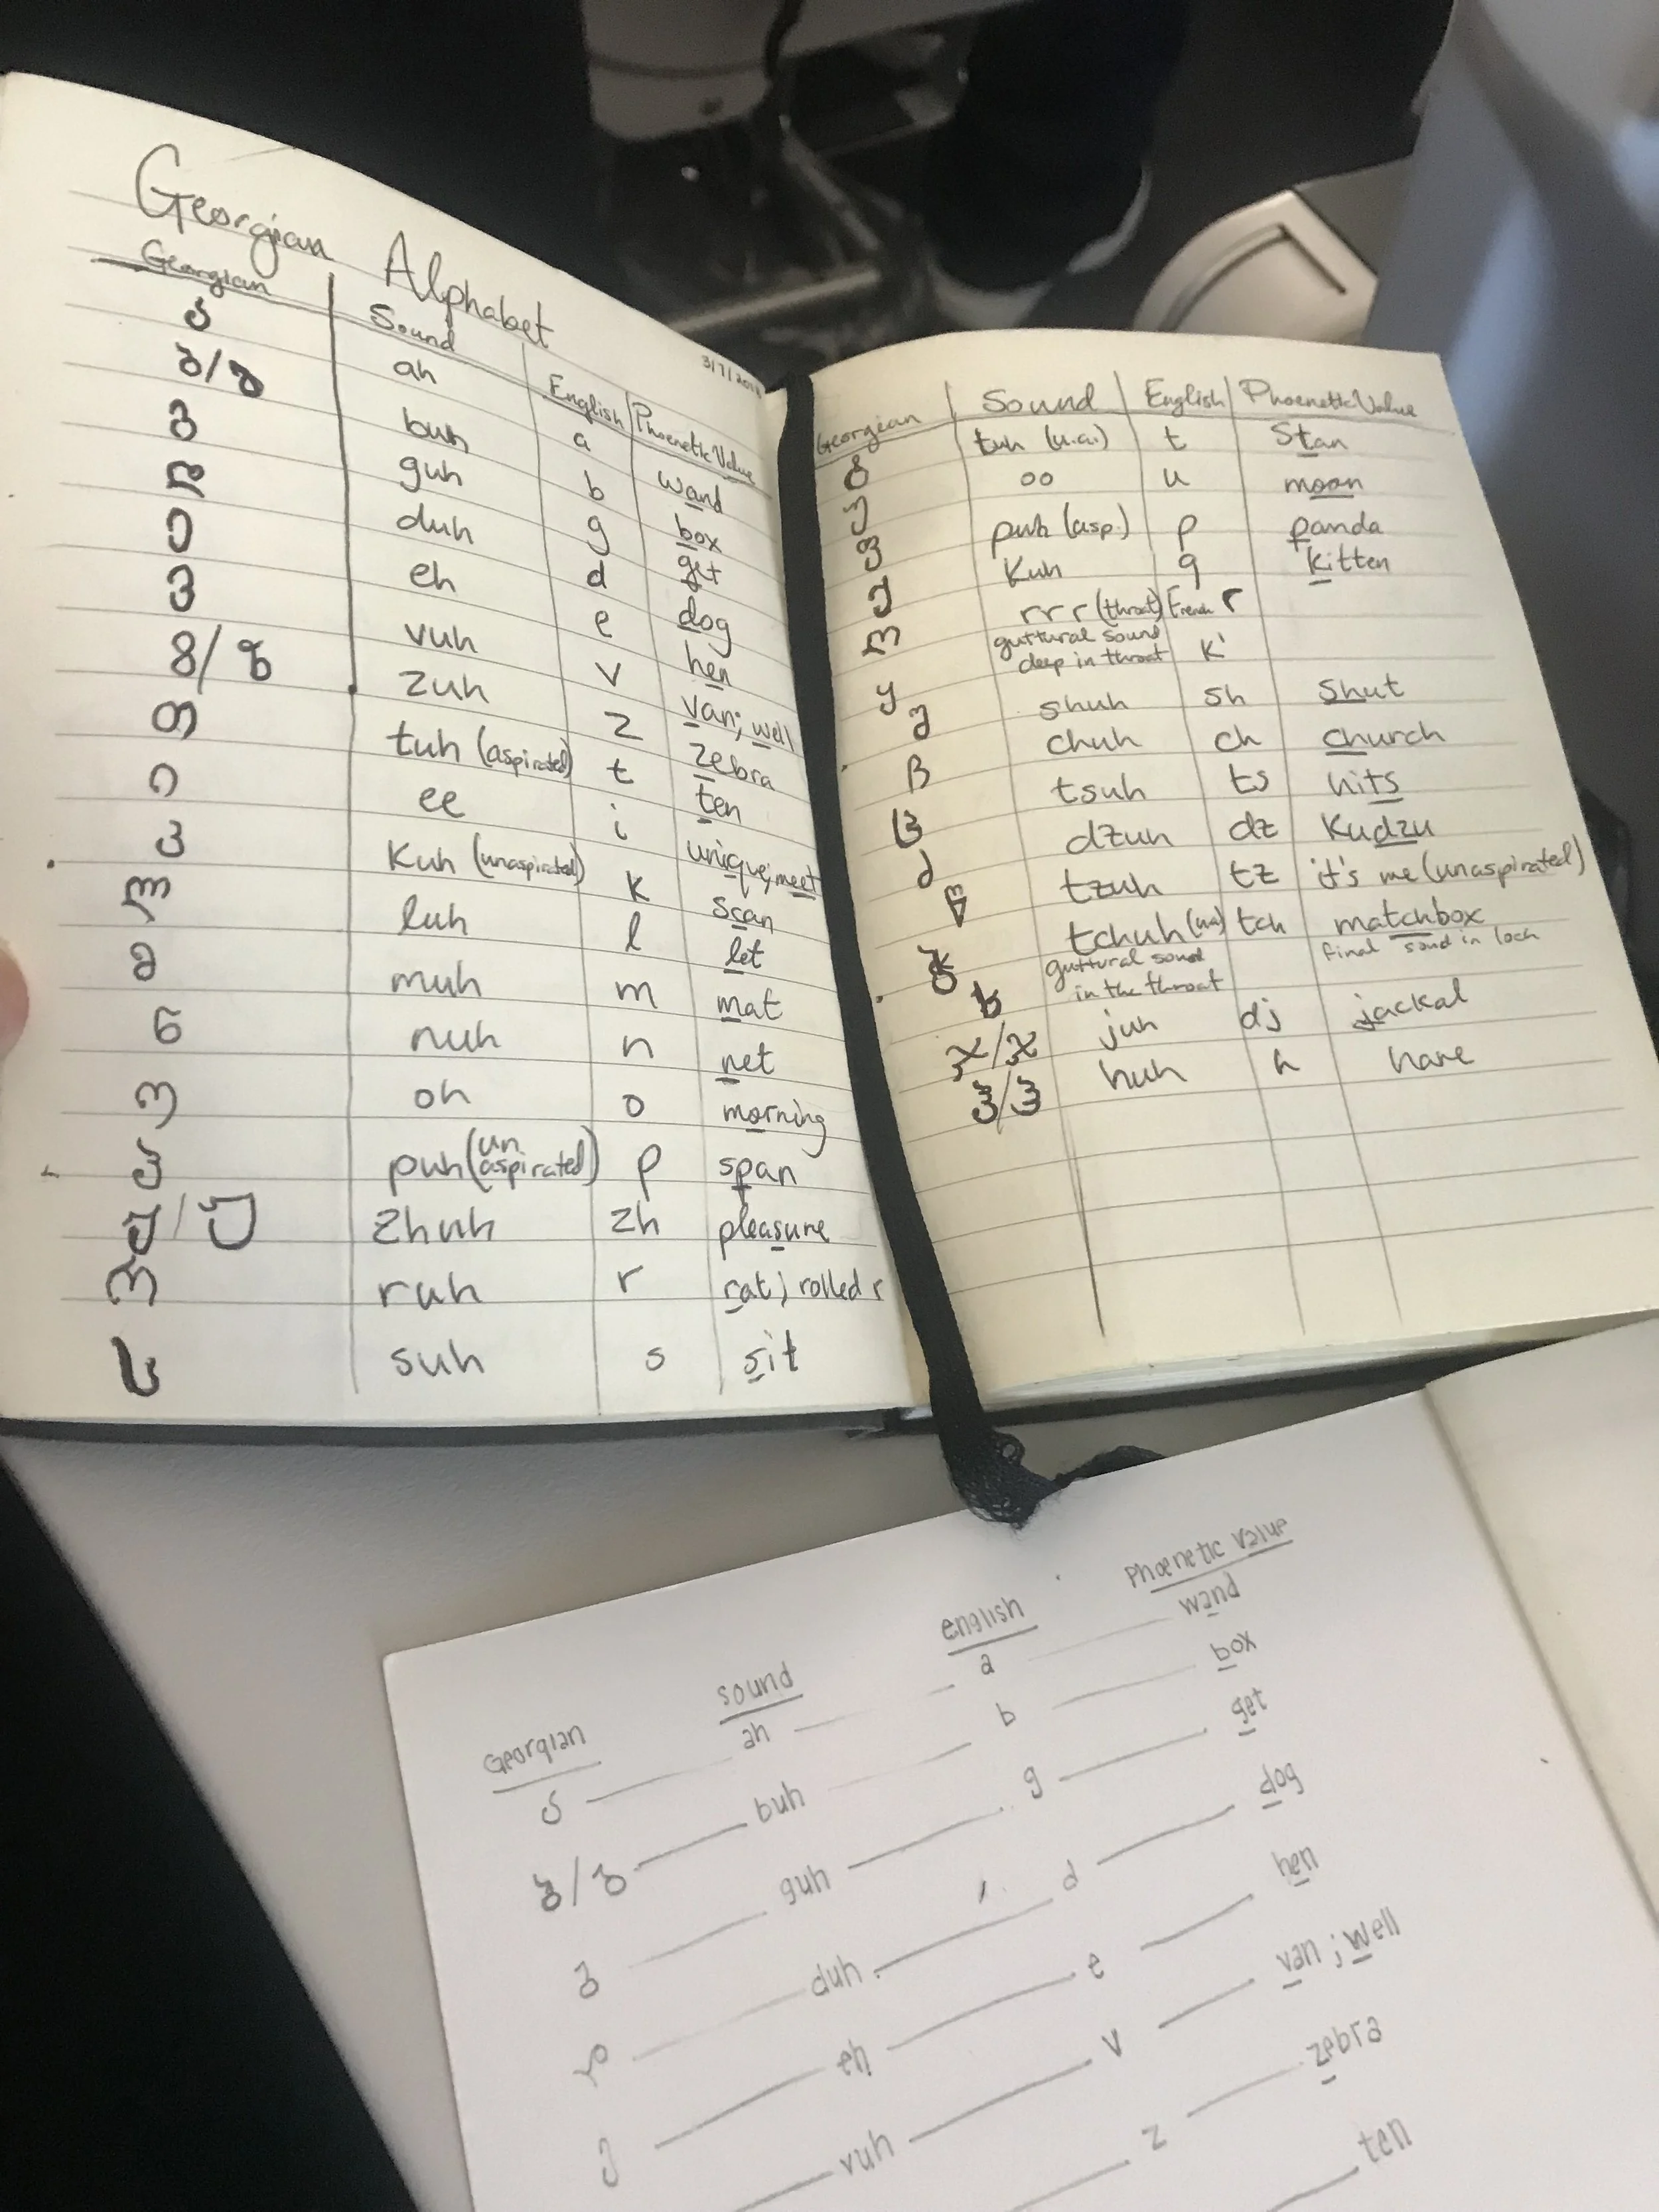 Georgian Alphabet
3/7/201
Georgian Sound English Phoenetic Value
ა ah a wand
ბ/ბ buh b box
გ guh g get
დ duh d dog
ე eh e hen
ვ vuh v van; well
ზ/ზ zuh z zebra
თ tuh (aspirated) t ten
ი ee i unique; meet
კ Kuh (unaspirated) k scan
ლ luh l let
მ muh m mat
ნ nuh n net
ო oh o morning
პ puh (un aspirated) p span
ჟ/ჟ zhuh zh pleasure
რ ruh r rat; rolled r
ს suh s sit
Georgian Sound English Phoenetic Value
ტ tuh (u.a.) t Stan
უ oo u moon
ფ puh (asp.) p panda
ქ Kuh q kitten
ღ rrr (throat) French r
ყ guttural sound deep in throat k'
შ shuh sh shut
ჩ chuh ch church
ც tsuh ts hits
ძ dzuh dz Kudzu
წ tzuh tz it's me (unaspirated)
ჭ tchuh (ua) tch matchbox
ხ guttural sound in the throat final sound in loch
ჯ/ჯ juh dj jackal
ჰ/ჰ huh h hare
Georgian sound english Phoenetic Value
ა ah a wand
ბ/ბ buh b box
გ guh g get
დ duh d dog
ე eh e hen
vuh v van; well
z zebra
ten